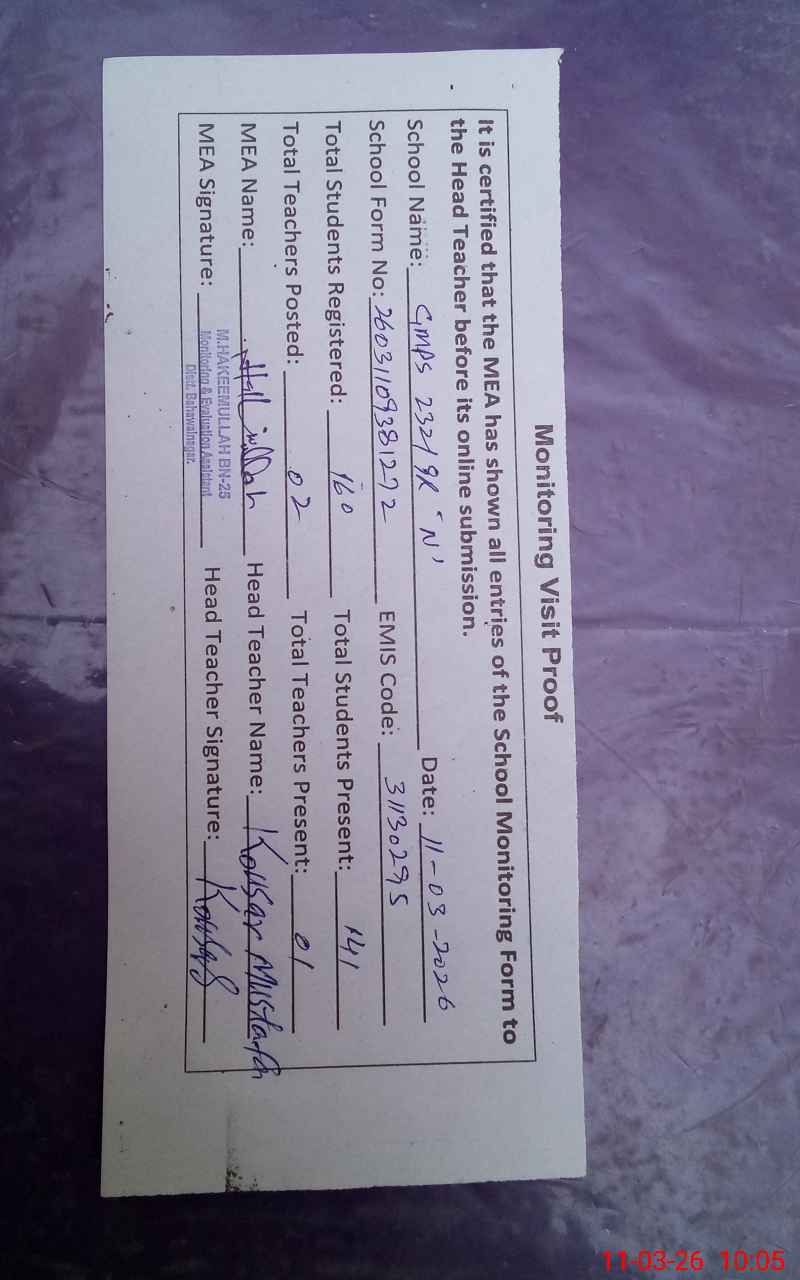 Monitoring Visit Proof
It is certified that the MEA has shown all entries of the School Monitoring Form to
the Head Teacher before its online submission.
School Name: GMPS 232/9R 'N' Date: 11-03-2026
School Form No: 26031109381272 EMIS Code: 31130295
Total Students Registered: 160 Total Students Present: 141
Total Teachers Posted: 02 Total Teachers Present: 01
MEA Name: Head Teacher Name: Kousar Mustafa
MEA Signature: M.HAKEEMULLAH BN-25 Head Teacher Signature: Kousar
Monitoring & Evaluation Assistant
Distt. Bahawalnagar.
11-03-26 10:05